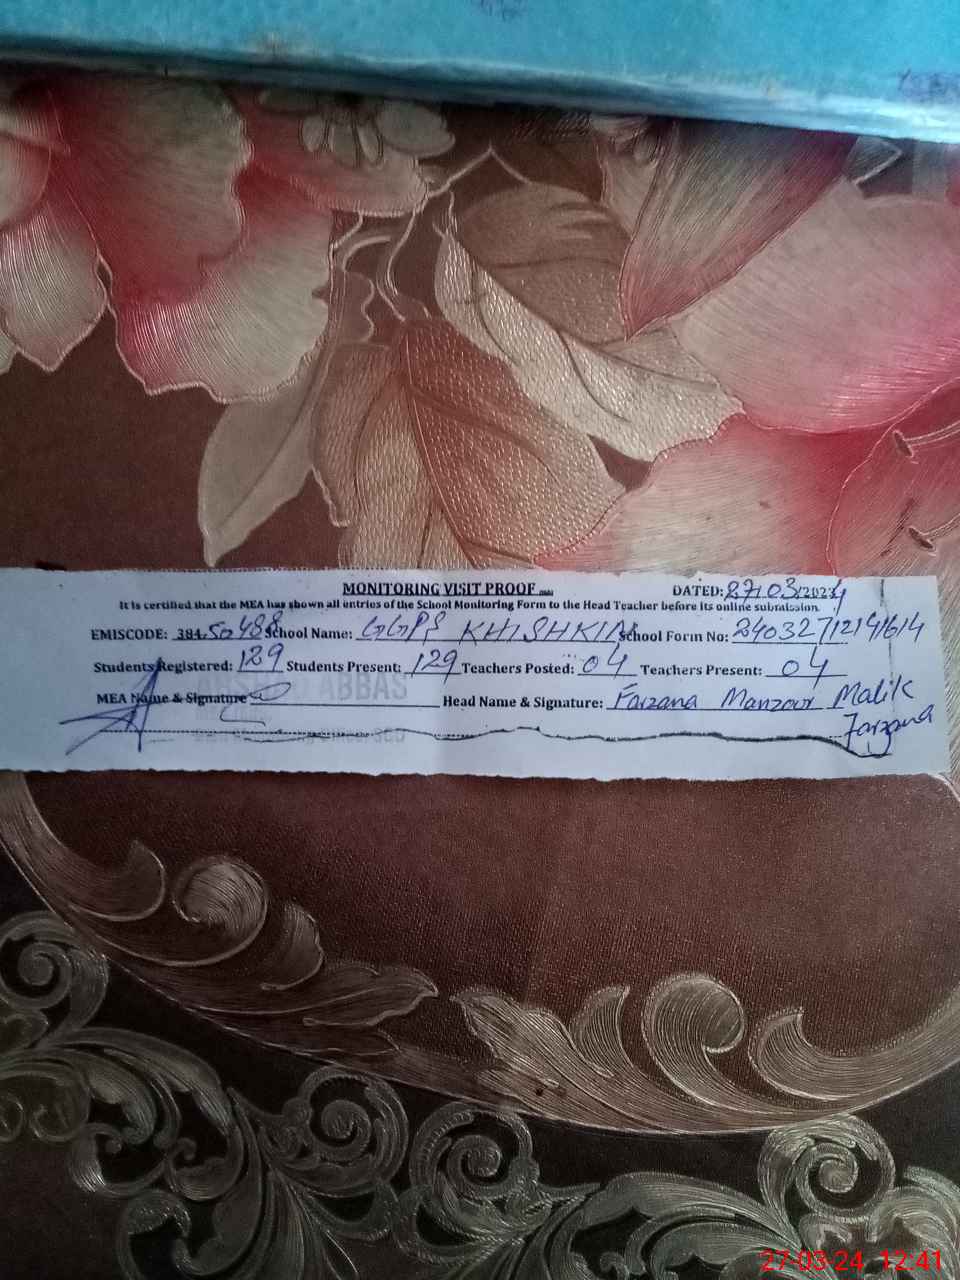 MONITORING VISIT PROOF DATED: 27/03/2024
It is certified that the MEA has shown all entries of the School Monitoring Form to the Head Teacher before its online submission.
EMISCODE: 381 50488 School Name: GGPS KHISHKIN School Form No:
Students Registered: 129 Students Present: 129 Teachers Posted: 04 Teachers Present: 04
MEA Name & Signature ABBAS Head Name & Signature: Farzana Manzoor Malik
Farzana
27-03-24 12:41